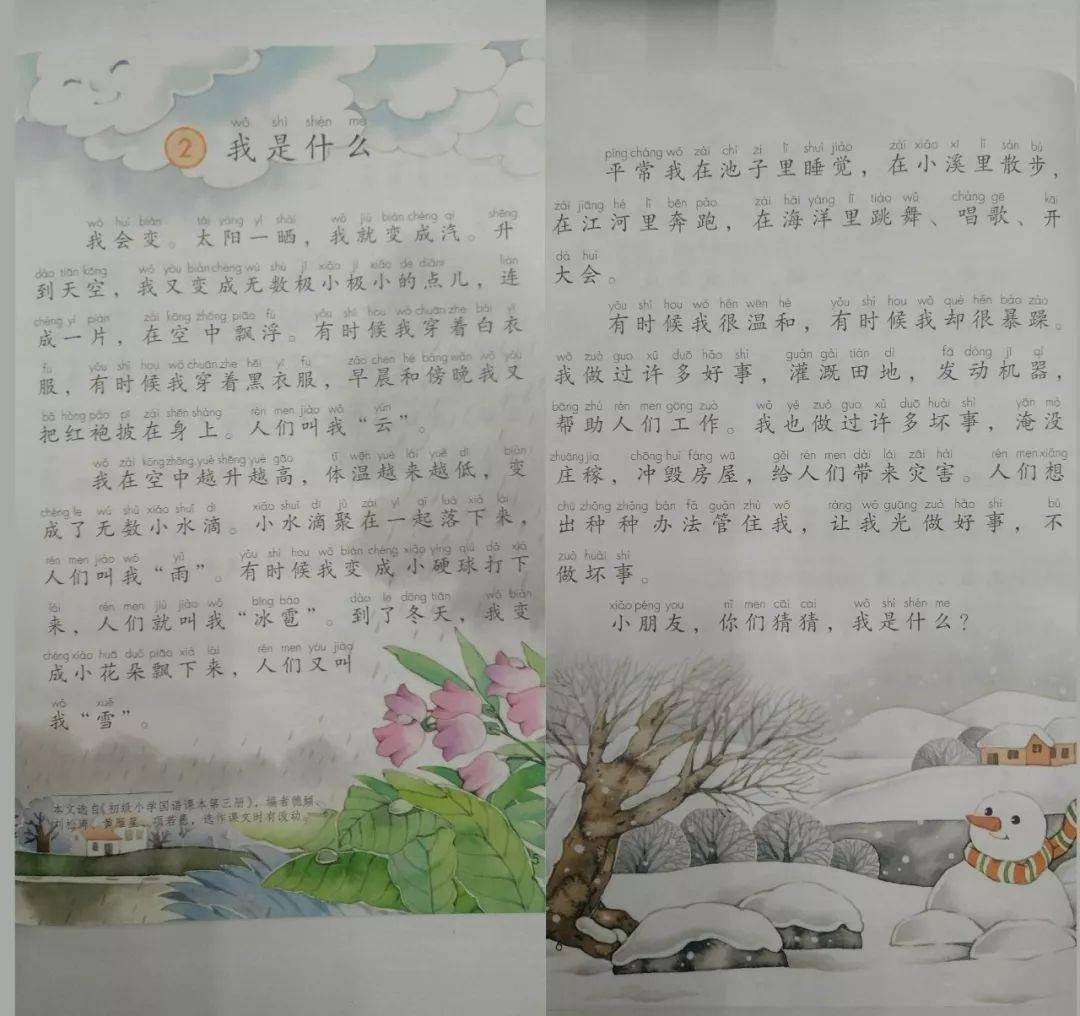 wǒ shì shén me
2 我是什么
wǒ huì biàn tài yáng yí shài wǒ jiù biàn chéng qì shēng
我会变。太阳一晒，我就变成汽。升
dào tiān kōng wǒ yòu biàn chéng wú shù jí xiǎo jí xiǎo de diǎnr lián
到天空，我又变成无数极小极小的点儿，连
chéng yí piàn zài kōng zhōng piāo fú yǒu shí hou wǒ chuān zhe bái yī
成一片，在空中飘浮。有时候我穿着白衣
fu yǒu shí hou wǒ chuān zhe hēi yī fu zǎo chen hé bàng wǎn wǒ yòu
服，有时候我穿着黑衣服，早晨和傍晚我又
bǎ hóng páo pī zài shēn shang rén men jiào wǒ yún
把红袍披在身上。人们叫我“云”。
wǒ zài kōng zhōng yuè shēng yuè gāo tǐ wēn yuè lái yuè dī biàn
我在空中越升越高，体温越来越低，变
chéng le wú shù xiǎo shuǐ dī xiǎo shuǐ dī jù zài yì qǐ luò xià lái
成了无数小水滴。小水滴聚在一起落下来，
rén men jiào wǒ yǔ yǒu shí hou wǒ biàn chéng xiǎo yìng qiú dǎ xià
人们叫我“雨”。有时候我变成小硬球打下
lái rén men jiù jiào wǒ bīng báo dào le dōng tiān wǒ biàn
来，人们就叫我“冰雹”。到了冬天，我变
chéng xiǎo huā duǒ piāo xià lái rén men yòu jiào
成小花朵飘下来，人们又叫
wǒ xuě
我“雪”。
本文选自《初级小学国语课本第三册》，编者德颖、
刘松涛、黄雁星、项若愚，选作课文时有改动。
5
píng cháng wǒ zài chí zi lǐ shuì jiào zài xiǎo xī lǐ sàn bù
平常我在池子里睡觉，在小溪里散步，
zài jiāng hé lǐ bēn pǎo zài hǎi yáng lǐ tiào wǔ chàng gē kāi
在江河里奔跑，在海洋里跳舞、唱歌、开
dà huì
大会。
yǒu shí hou wǒ hěn wēn hé yǒu shí hou wǒ què hěn bào zào
有时候我很温和，有时候我却很暴躁。
wǒ zuò guo xǔ duō hǎo shì guàn gài tián dì fā dòng jī qì
我做过许多好事，灌溉田地，发动机器，
bāng zhù rén men gōng zuò wǒ yě zuò guo xǔ duō huài shì yān mò
帮助人们工作。我也做过许多坏事，淹没
zhuāng jia chōng huǐ fáng wū gěi rén men dài lái zāi hài rén men xiǎng
庄稼，冲毁房屋，给人们带来灾害。人们想
chū zhǒng zhǒng bàn fǎ guǎn zhù wǒ ràng wǒ guāng zuò hǎo shì bú
出种种办法管住我，让我光做好事，不
zuò huài shì
做坏事。
xiǎo péng you nǐ men cāi cai wǒ shì shén me
小朋友，你们猜猜，我是什么？
6